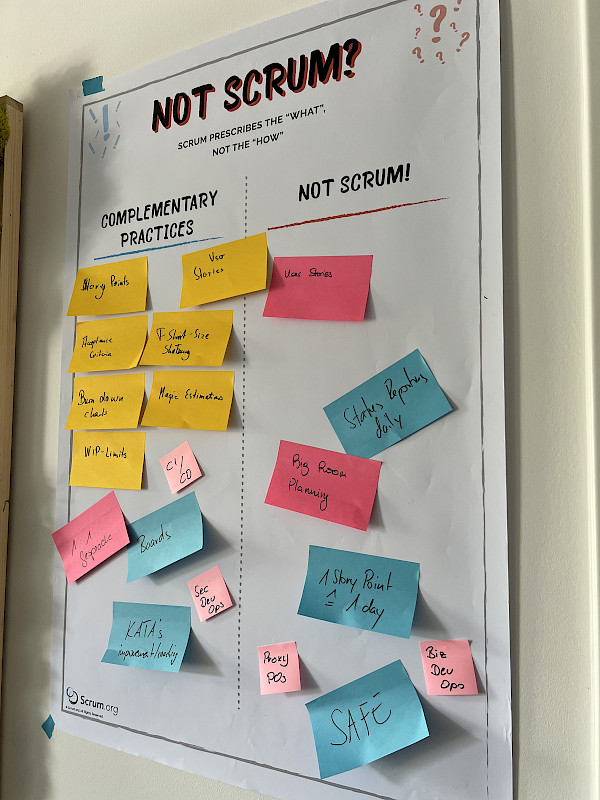 NOT SCRUM?
SCRUM PRESCRIBES THE "WHAT",
NOT THE "HOW"
COMPLEMENTARY
PRACTICES
Story Points
User
Stories
Acceptance
Criteria
T-Shirt-Size
Burn down
charts
Magic Estimation
WIP-Limits
CI/
CD
1:1
Gespräche
Boards
Sec
Dev
Ops
KATA's
improvement/coaching
NOT SCRUM!
User Stories
Status Reporting
daily
Big Room
Planning
1 Story Point
≙ 1 day
Proxy
POs
Biz
Dev
Ops
SAFE
Scrum.org